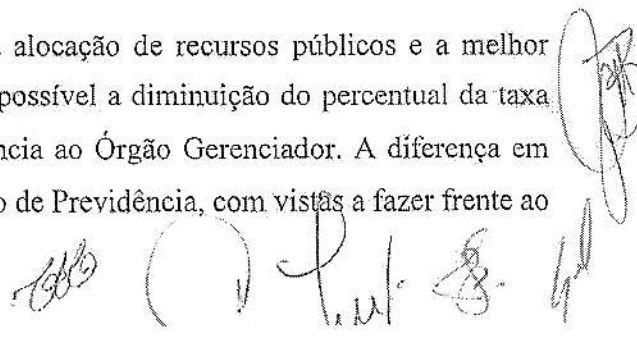 alocação de recursos públicos e a melhor
possível a diminuição do percentual da taxa
ncia ao Órgão Gerenciador. A diferença em
o de Previdência, com vistas a fazer frente ao